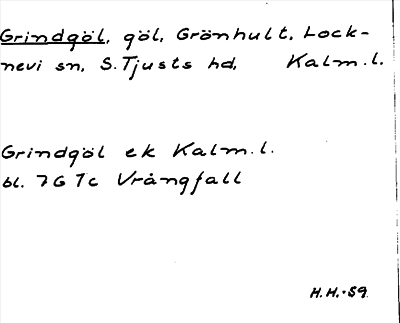 Grindgöl, göl, Grönhult, Lock-
nevi sn, S. Tjusts hd, Kalm. l.
Grindgöl ek Kalm. l.
bl. 7G 7c Vrångfall
H.H.-59